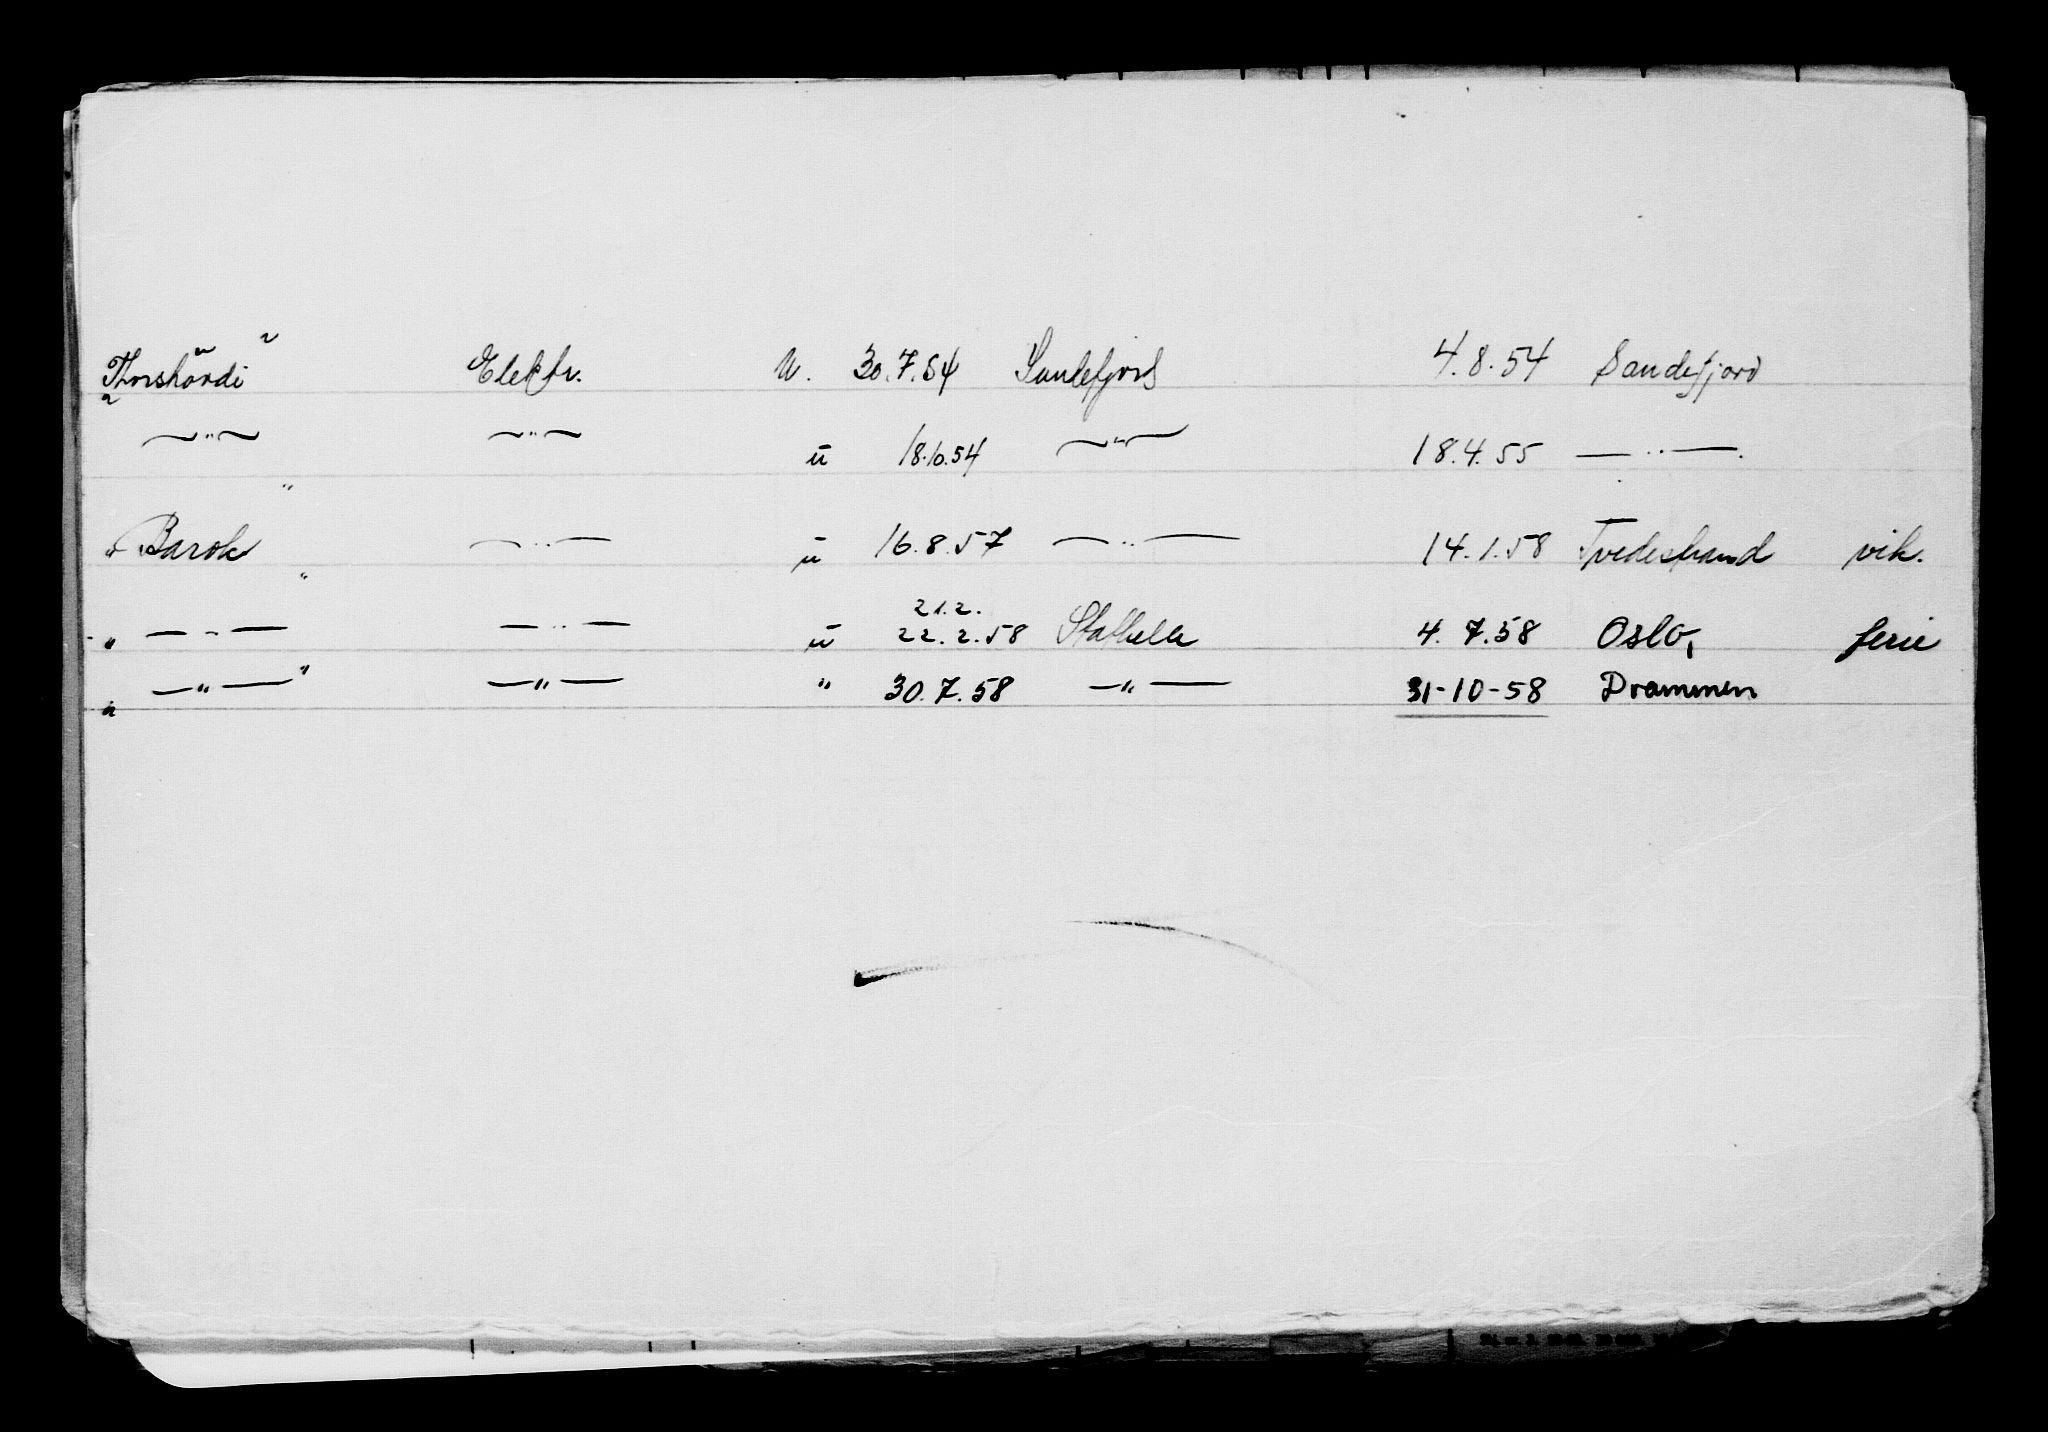 "Thorshövdi" Elektr. U. 30.7.54 Sandefjord 4.8.54 Sandefjord
—"— —"— u 18.10.54 —"— 18.4.55 —"—.
"Barok" —"— u 16.8.57 —"— 14.1.58 Tvedestrand vik.
21.2.
"—"—" —"— u 22.2.58 Stathelle 4.7.58 Oslo, ferie
"—"—" —"— " 30.7.58 —"— 31-10-58 Drammen